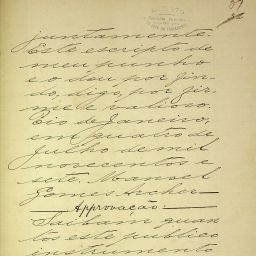 juntamente.
Este escripto de
meu punho
e o dou por fin-
do, digo, por fir-
me e valioso.
Rio de Janeiro,
em quatro de
Julho de mil
novecentos e
sete. Manoel
Gomes Archer
Approvação
Saibam quan
tos este publico
instrumento